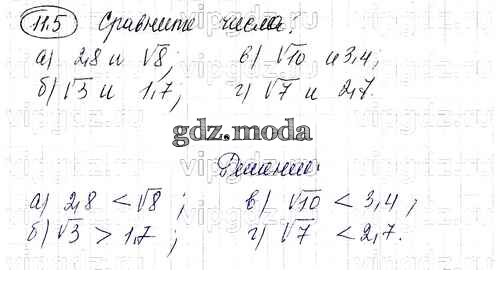 11.5 Сравните числа:
а) 2,8 и √8; в) √10 и 3,4;
б) √3 и 1,7; г) √7 и 2,7.
gdz.moda
Решение:
а) 2,8 < √8; в) √10 < 3,4;
б) √3 > 1,7; г) √7 < 2,7.